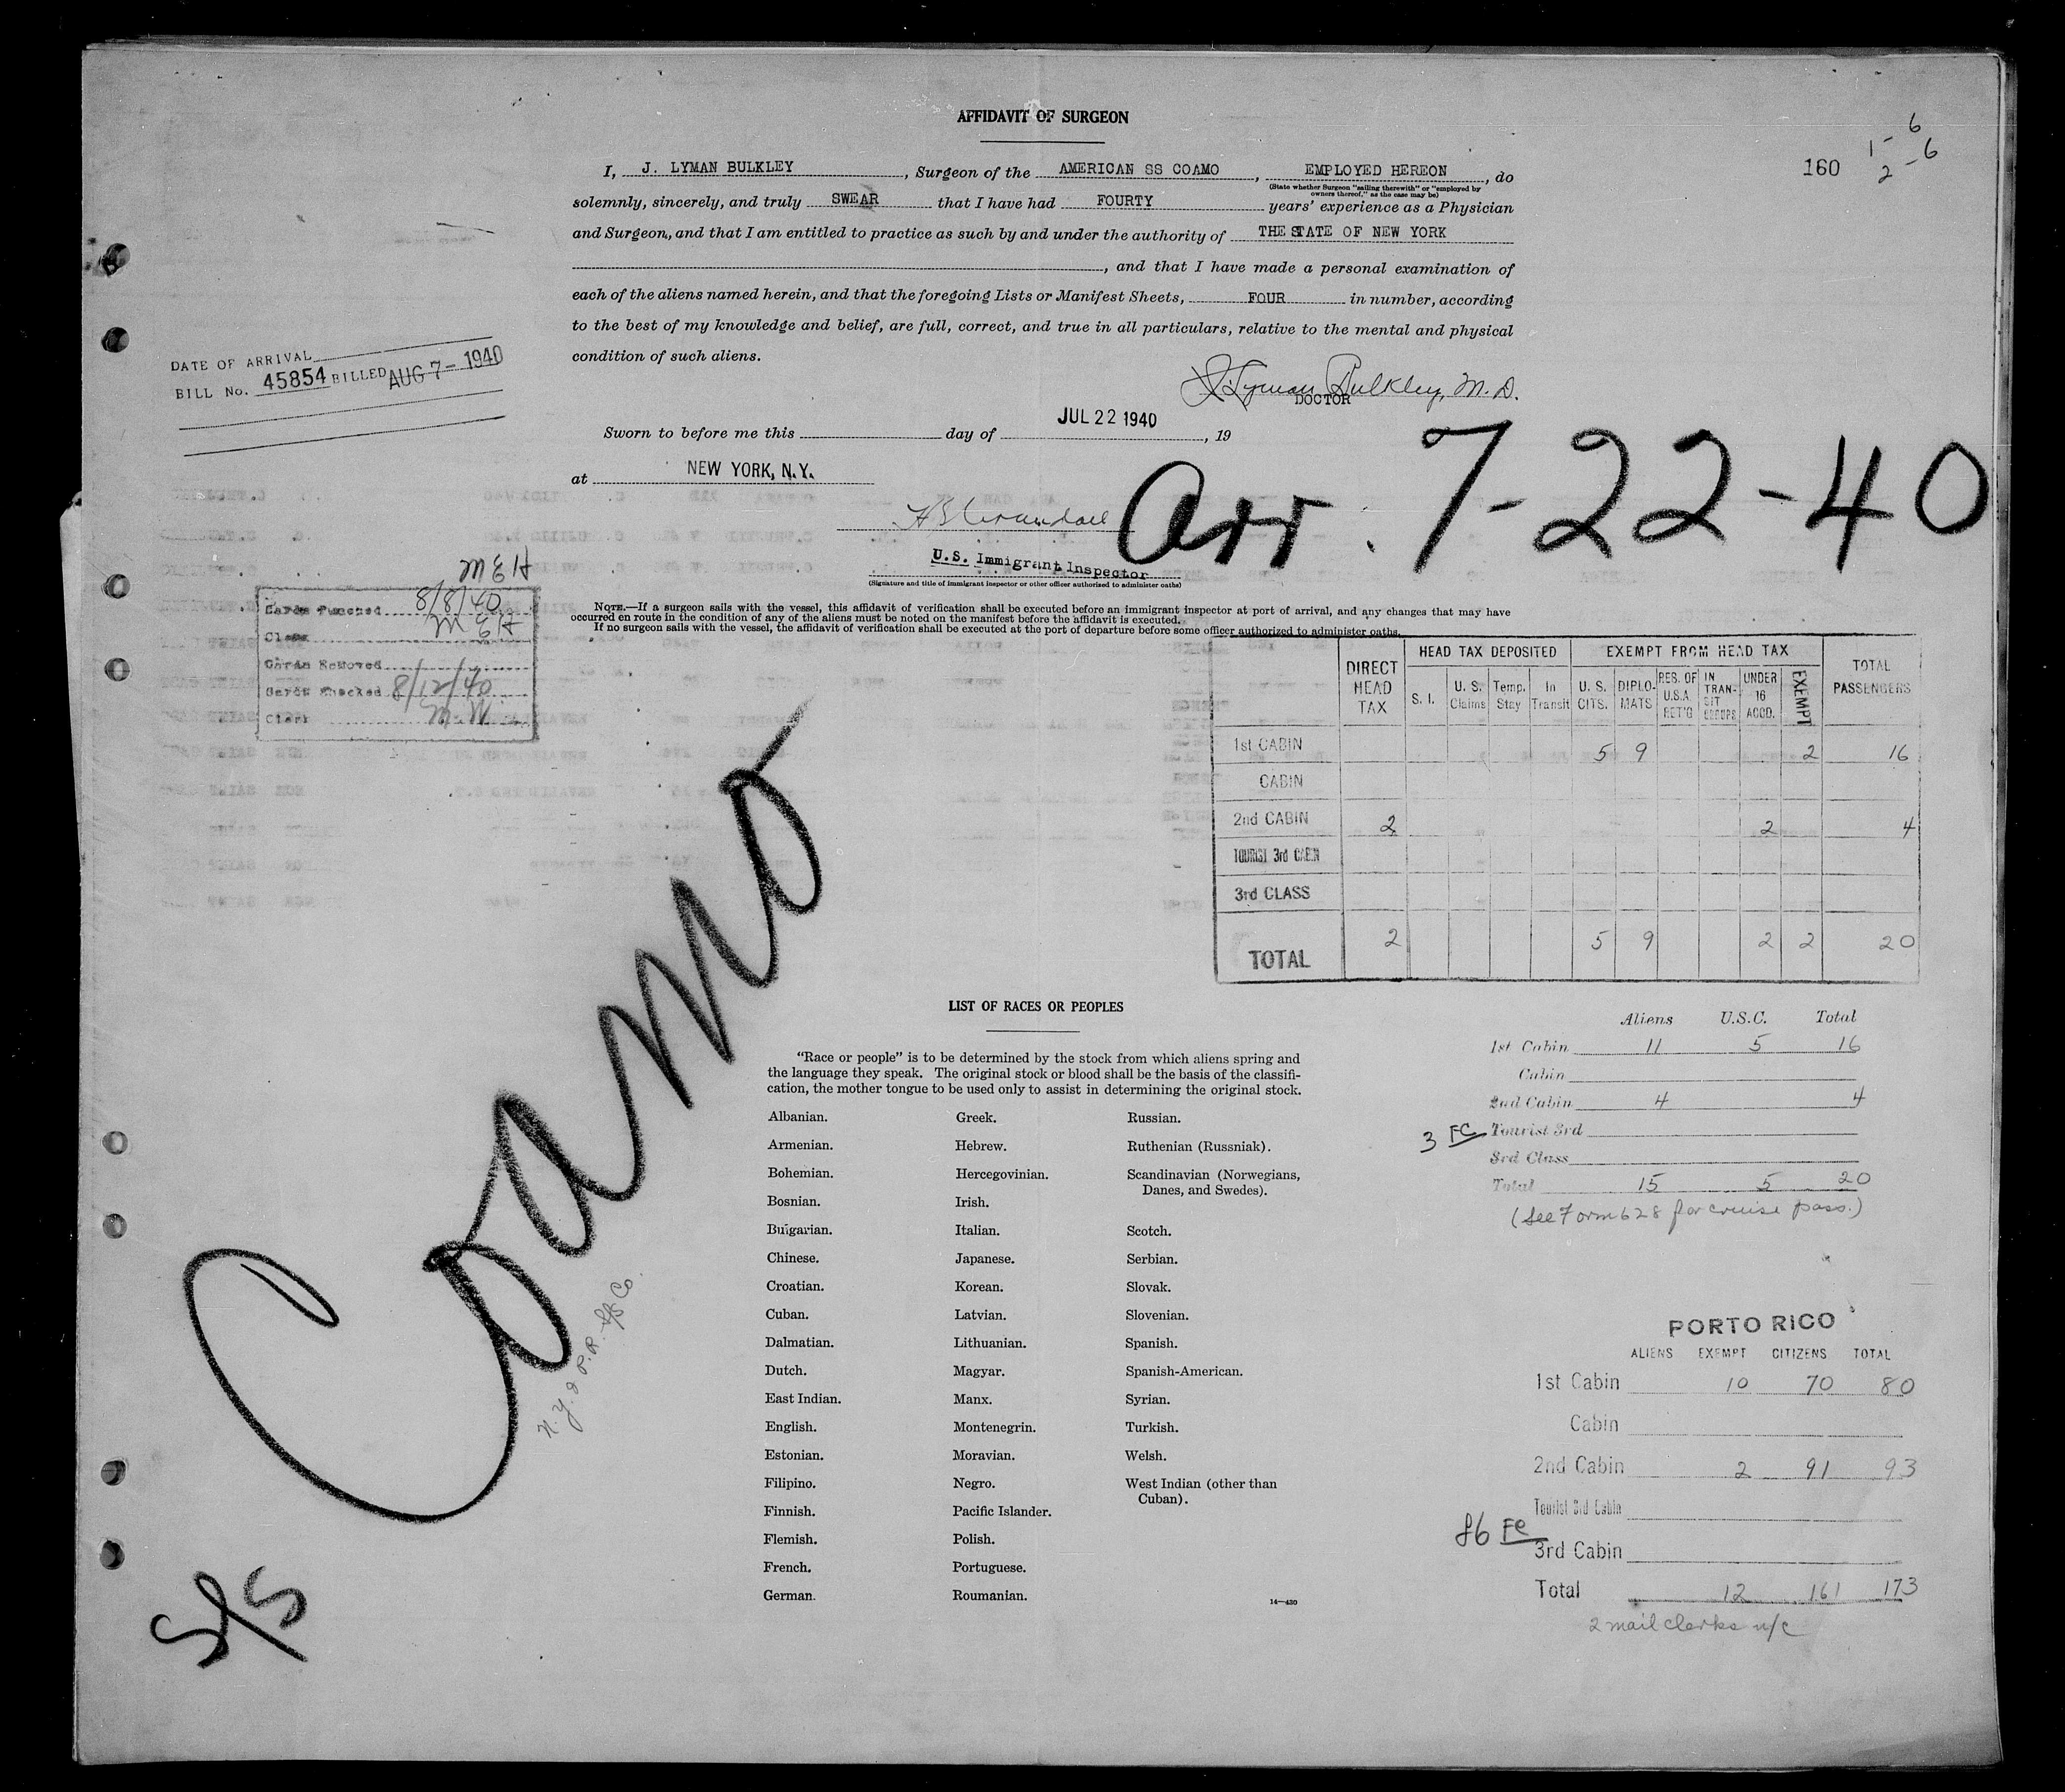 AFFIDAVIT OF SURGEON
160
1 - 6
2 - 6
I, J. LYMAN BULKLEY, Surgeon of the AMERICAN SS COAMO, EMPLOYED HEREON, do
(State whether Surgeon "sailing therewith" or "employed by
owners thereof," as the case may be)
solemnly, sincerely, and truly SWEAR that I have had FOURTY years' experience as a Physician
and Surgeon, and that I am entitled to practice as such by and under the authority of THE STATE OF NEW YORK
, and that I have made a personal examination of
each of the aliens named herein, and that the foregoing Lists or Manifest Sheets, FOUR in number, according
to the best of my knowledge and belief, are full, correct, and true in all particulars, relative to the mental and physical
condition of such aliens.
DATE OF ARRIVAL
BILL No. 45854 BILLED AUG 7 - 1940
J. Lyman Bulkley, M.D.
DOCTOR
Sworn to before me this day of JUL 22 1940, 19
at NEW YORK, N.Y.
Arr. 7-22-40
U.S. Immigrant Inspector
(Signature and title of immigrant inspector or other officer authorized to administer oaths)
MEH
Cards Punched 8/8/40
Clerk MEH
Cards Removed
Cards Checked 8/12/40
Clerk M.W.
NOTE.—If a surgeon sails with the vessel, this affidavit of verification shall be executed before an immigrant inspector at port of arrival, and any changes that may have
occurred en route in the condition of any of the aliens must be noted on the manifest before the affidavit is executed.
If no surgeon sails with the vessel, the affidavit of verification shall be executed at the port of departure before some officer authorized to administer oaths.
DIRECT HEAD TAX HEAD TAX DEPOSITED EXEMPT FROM HEAD TAX TOTAL PASSENGERS
S. I. U. S. Claims Temp. Stay In Transit U. S. CITS. DIPLOMATS RES. OF U.S.A. RET'G IN TRANSIT GROUPS UNDER 16 ACCD. EXEMPT
1st CABIN 5 9 2 16
CABIN
2nd CABIN 2 2 4
TOURIST 3rd CABIN
3rd CLASS
TOTAL 2 5 9 2 2 20
Coamo
N.Y. & P.R. S/S Co.
S/S
LIST OF RACES OR PEOPLES
"Race or people" is to be determined by the stock from which aliens spring and
the language they speak. The original stock or blood shall be the basis of the classifi-
cation, the mother tongue to be used only to assist in determining the original stock.
Albanian.
Armenian.
Bohemian.
Bosnian.
Bulgarian.
Chinese.
Croatian.
Cuban.
Dalmatian.
Dutch.
East Indian.
English.
Estonian.
Filipino.
Finnish.
Flemish.
French.
German.
Greek.
Hebrew.
Hercegovinian.
Irish.
Italian.
Japanese.
Korean.
Latvian.
Lithuanian.
Magyar.
Manx.
Montenegrin.
Moravian.
Negro.
Pacific Islander.
Polish.
Portuguese.
Roumanian.
Russian.
Ruthenian (Russniak).
Scandinavian (Norwegians,
Danes, and Swedes).
Scotch.
Serbian.
Slovak.
Slovenian.
Spanish.
Spanish-American.
Syrian.
Turkish.
Welsh.
West Indian (other than
Cuban).
14—430
Aliens U.S.C. Total
1st Cabin 11 5 16
Cabin
2nd Cabin 4 4
3 FC Tourist 3rd
3rd Class
Total 15 5 20
(See Form 628 for cruise pass.)
PORTO RICO
ALIENS EXEMPT CITIZENS TOTAL
1st Cabin 10 70 80
Cabin
2nd Cabin 2 91 93
Tourist 3rd Cabin
86 FC
3rd Cabin
Total 12 161 173
2 mail clerks n/c